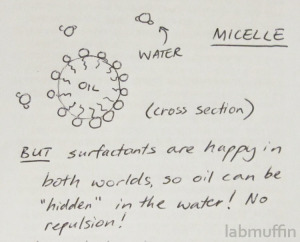 MICELLE
WATER
OIL
(cross section)
BUT surfactants are happy in
both worlds, so oil can be
"hidden" in the water! No
repulsion!
labmuffin